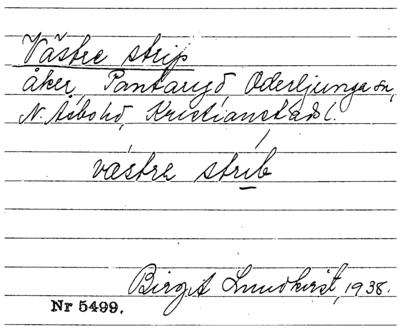 Västre strip
åker, Pantaryd Oderljunga sn,
N. Åsbo hd, Kristianstads l.
västre strib
Birgit Lundkvist, 1938.
Nr 5499.